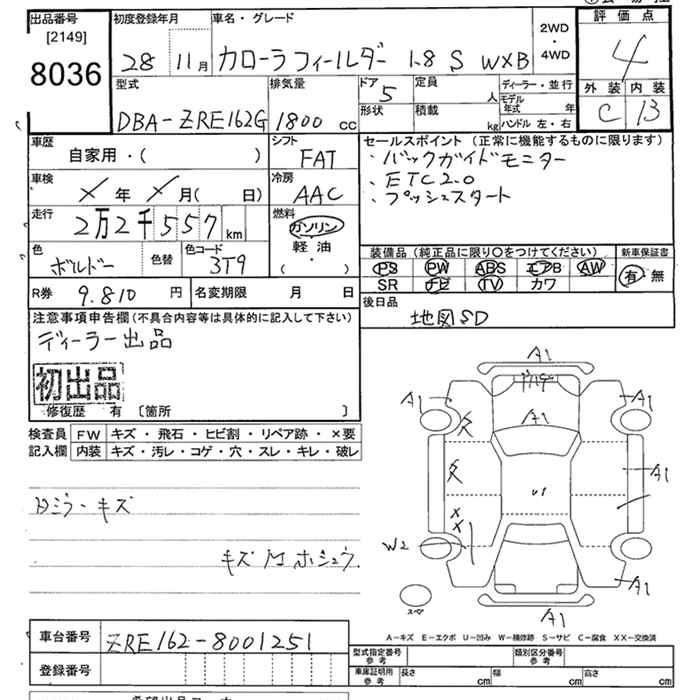 出品番号 初度登録年月 車名・グレード 評価点
[2149]
8036 28 11月 カローラフィールダー 1.8 S W×B 2WD・4WD 4
型式 排気量 ドア 5 定員 人 ディーラー・並行 外装 内装
DBA-ZRE162G 1800 cc 形状 積載 kg モデル年式 年 ハンドル 左・右 C B
車歴 自家用・( ) シフト FAT セールスポイント(正常に機能するものに限ります)
・バックガイドモニター
車検 × 年 × 月( 日) 冷房 AAC ・ETC2.0
・プッシュスタート
走行 2万2千557 km 燃料 ガソリン 軽油 ( ・ )
色 ボルドー 色替 色コード 3T9 装備品(純正品に限り〇をつけてください) 新車保証書
PS PW ABS エアB AW 有・無
SR ナビ TV カワ
R券 9.810 円 名変期限 月 日 後日品
地図SD
注意事項申告欄(不具合内容等は具体的に記入して下さい)
ディーラー出品
初出品
修復歴 有 [箇所 ]
検査員 FW キズ・飛石・ヒビ割・リペア跡・×要
記入欄 内装 キズ・汚レ・コゲ・穴・スレ・キレ・破レ
ミラーキズ
キズ ホシュウ
A1
A1
A1
A1
A1
A1
W2
A1
A1
スペア
A-キズ E-エクボ U-凹み W-補修跡 S-サビ C-腐食 XX-交換済
車台番号 ZRE162-8001251
登録番号
型式指定番号 参考 類別区分番号 参考
車庫証明用 参考 長さ cm 幅 cm 高さ cm